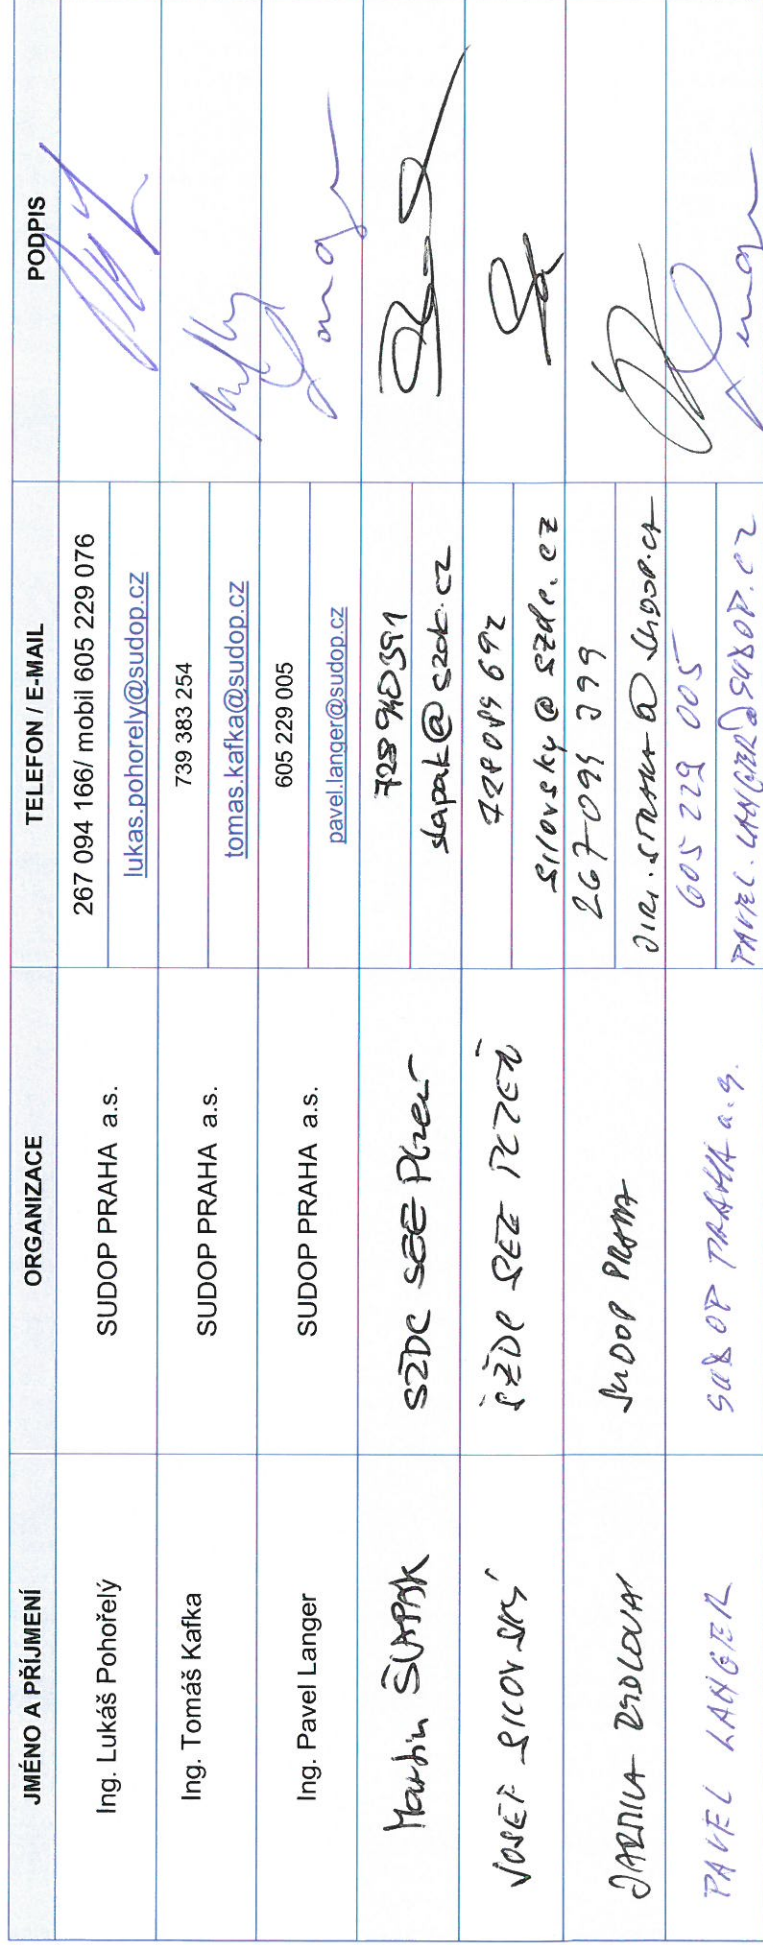 JMÉNO A PŘÍJMENÍ ORGANIZACE TELEFON / E-MAIL PODPIS
Ing. Lukáš Pohořelý SUDOP PRAHA a.s. 267 094 166/ mobil 605 229 076
lukas.pohorely@sudop.cz
Ing. Tomáš Kafka SUDOP PRAHA a.s. 739 383 254
tomas.kafka@sudop.cz
Ing. Pavel Langer SUDOP PRAHA a.s. 605 229 005
pavel.langer@sudop.cz
Martin ŠLAPÁK SŽDC SEE Plzeň
slapak@szdc.cz
JOSEF SILOVSKÝ SŽDC SEE PLZEŇ
silovsky@szdc.cz
SUDOP PRAHA 267 094 399
PAVEL LANGER SUDOP PRAHA a.s. 605 229 005
PAVEL.LANGER@SUDOP.CZ